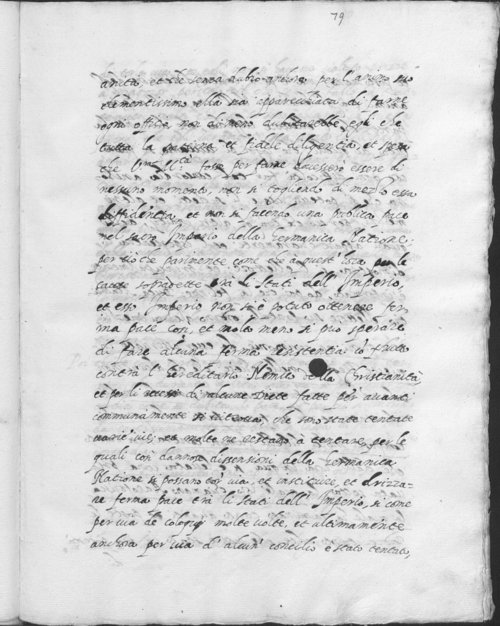 79
unità, et che senza dubio anchora per l'animo suo
clementissimo ella sia apparecchiata di farne
ogni offitio non dimeno dubitarebbe egli che
tutta la et fedele diligentia, et spesa
che V. M.tà fosse per farne dovessero essere di
nessuno momento, non si togliendo di mezzo essa
diffidentia, et non si facendo una publica pace
nel sacro Imperio della Germanica Natione,
per ciò che parimente come che à quest'hora per le
cause sopradette trà li Stati dell'Imperio,
et esso Imperio non si è potuto ottenere fer
ma pace con, et molto meno si può sperare
di fare alcuna ferma resistentia ò frutto
contra l'hereditario Nemico della Christianità
et per li recessi di alcune Diete fatte per avanti
communemente si ritrova, che sono state tentate
varie vie, et molte ne restano à tentare, per le
quali con dannose dissensioni della Germanica
Natione si possano tor via, et instituire, et drizza=
re ferma pace trà li Stati dell'Imperio, si come
per via de colloquij molte volte, et ultimamente
anchora per via d'alcun' concilio è stato tentato,